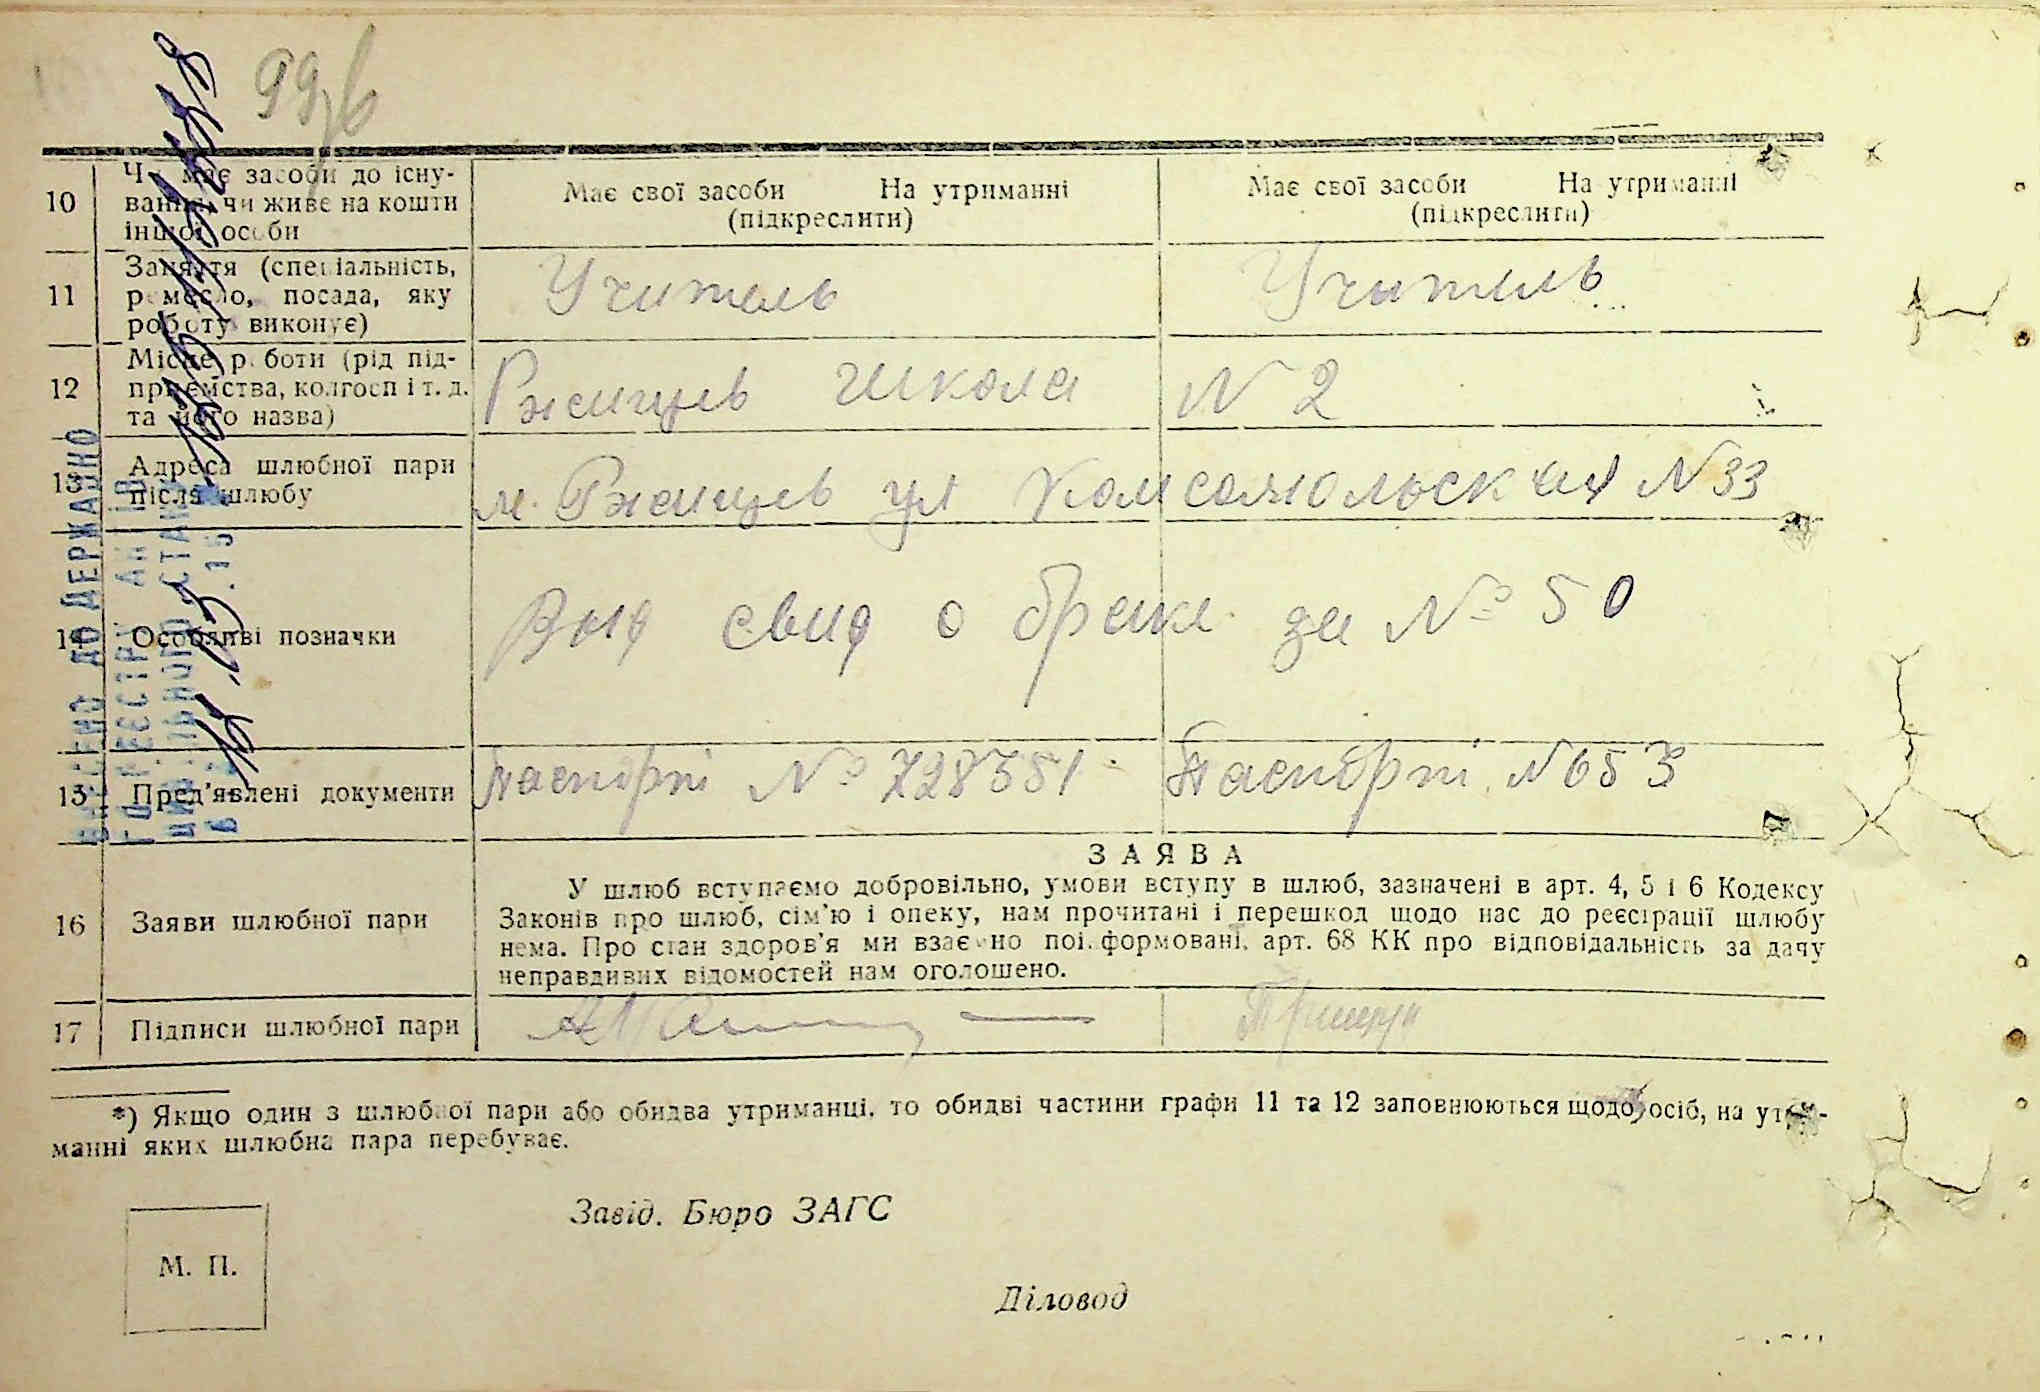 99зв
10 Чи має засоби до існу-
вання, чи живе на кошти
іншої особи
Має свої засоби На утриманні
(підкреслити)
Має свої засоби На утриманні
(підкреслити)
11 Заняття (спеціальність,
ремесло, посада, яку
роботу виконує)
Учитель
Учитель
12 Місце роботи (рід під-
приємства, колгосп і т. д.
та його назва)
Ржищев школа № 2
13 Адреса шлюбної пари
після шлюбу
м. Ржищев ул Комсомольская № 33
14 Особливі позначки
Выд свид о браке за № 50
15 Пред'явлені документи
Паспорт № 728351
Паспорт № 653
16 Заяви шлюбної пари
ЗАЯВА
У шлюб вступаємо добровільно, умови вступу в шлюб, зазначені в арт. 4, 5 і 6 Кодексу
Законів про шлюб, сім'ю і опеку, нам прочитані і перешкод щодо нас до реєстрації шлюбу
нема. Про стан здоров'я ми взаємно поінформовані, арт. 68 КК про відповідальність за дачу
неправдивих відомостей нам оголошено.
17 Підписи шлюбної пари
*) Якщо один з шлюбної пари або обидва утриманці, то обидві частини графи 11 та 12 заповнюються щодо осіб, на утри-
манні яких шлюбна пара перебуває.
Завід. Бюро ЗАГС
М. П.
Діловод
ВНЕСЕНО ДО ДЕРЖАВНО
ГО РЕЄСТРУ АКТІВ
ЦИВІЛЬНОГО СТАНУ